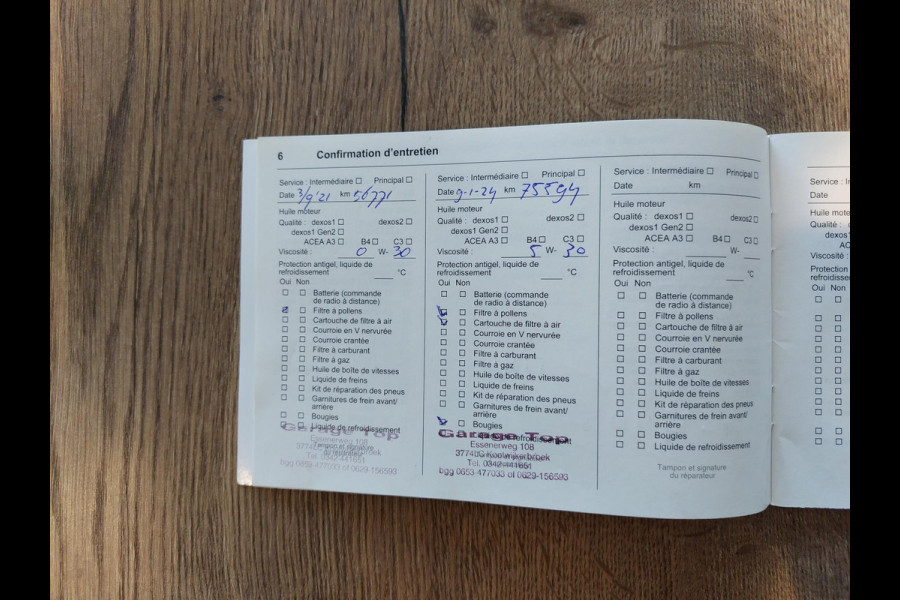 6 Confirmation d'entretien
Service : Intermédiaire Principal
Date 3/9'21 km 56771
Huile moteur
Qualité : dexos1 dexos2
dexos1 Gen2
ACEA A3 B4 C3
Viscosité : 0 W- 30
Protection antigel, liquide de
refroidissement °C
Oui Non
Batterie (commande
de radio à distance)
Filtre à pollens
Cartouche de filtre à air
Courroie en V nervurée
Courroie crantée
Filtre à carburant
Filtre à gaz
Huile de boîte de vitesses
Liquide de freins
Kit de réparation des pneus
Garnitures de frein avant/
arrière
Bougies
Liquide de refroidissement
Garage Top
Essenerweg 108
Tampon et signature
du réparateur
Tel. 0342-441651
bgg 0653-477033 of 0629-156593
Service : Intermédiaire Principal
Date 9-1-24 km 75594
Huile moteur
Qualité : dexos1 dexos2
dexos1 Gen2
ACEA A3 B4 C3
Viscosité : 5 W- 30
Protection antigel, liquide de
refroidissement °C
Oui Non
Batterie (commande
de radio à distance)
Filtre à pollens
Cartouche de filtre à air
Courroie en V nervurée
Courroie crantée
Filtre à carburant
Filtre à gaz
Huile de boîte de vitesses
Liquide de freins
Kit de réparation des pneus
Garnitures de frein avant/
arrière
Bougies
Garage Top
Essenerweg 108
Tel. 0342-441651
bgg 0653-477033 of 0629-156593
Service : Intermédiaire Principal
Date km
Huile moteur
Qualité : dexos1 dexos2
dexos1 Gen2
ACEA A3 B4 C3
Viscosité : W-
Protection antigel, liquide de
refroidissement °C
Oui Non
Batterie (commande
de radio à distance)
Filtre à pollens
Cartouche de filtre à air
Courroie en V nervurée
Courroie crantée
Filtre à carburant
Filtre à gaz
Huile de boîte de vitesses
Liquide de freins
Kit de réparation des pneus
Garnitures de frein avant/
arrière
Bougies
Liquide de refroidissement
Tampon et signature
du réparateur
Service :
Date
Huile
Qualité :
Viscosité :
Protection
refroidissement
Oui Non